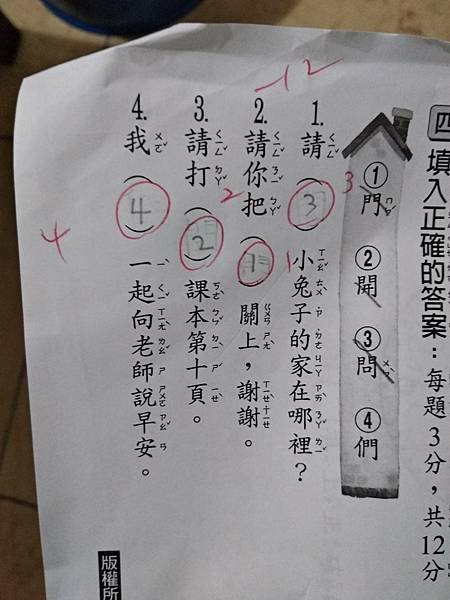 四 填入正確的答案：每題3分，共12分
①門 ②開 ③問 ④們
-12
1. 請（3）小兔子的家在哪裡？
3
2. 請你把（1）關上，謝謝。
1
3. 請打（2）課本第十頁。
2
4. 我（4）一起向老師說早安。
4
版權所